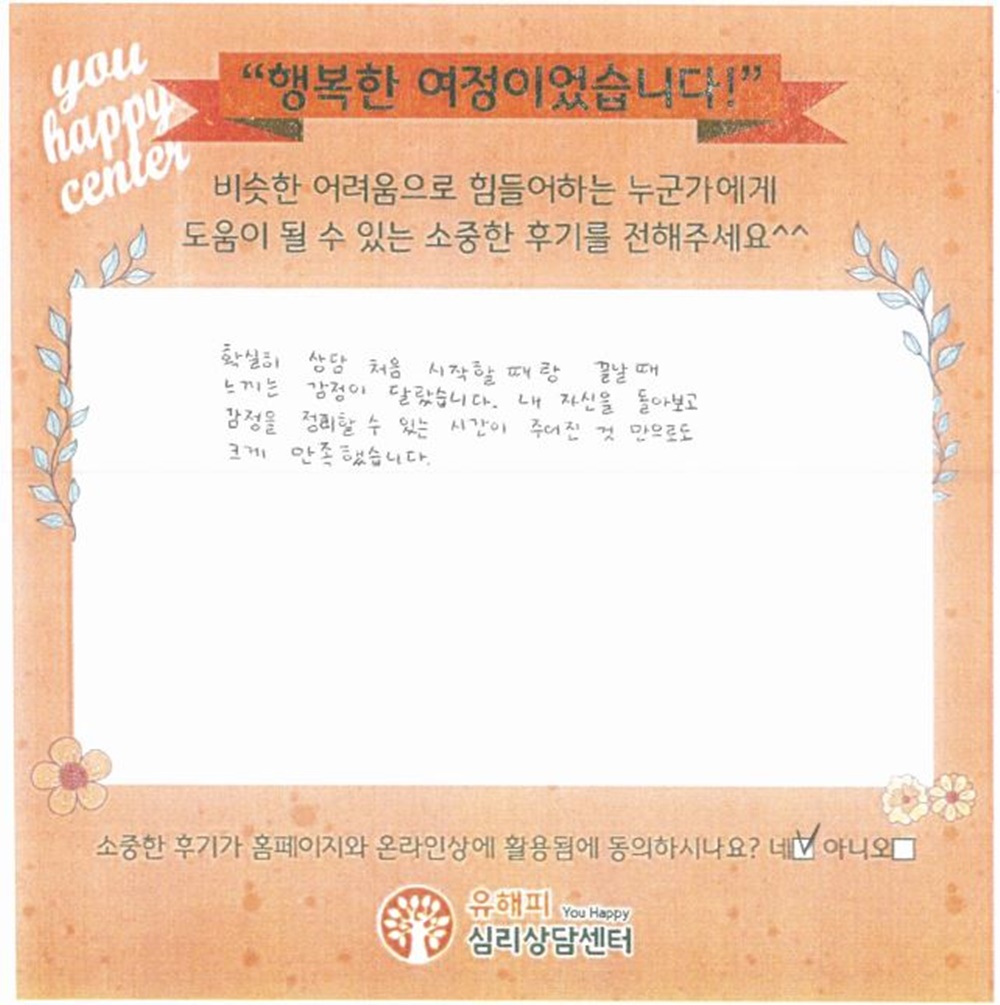 you
happy
center
“행복한 여정이었습니다!”
비슷한 어려움으로 힘들어하는 누군가에게
도움이 될 수 있는 소중한 후기를 전해주세요^^
확실히 상담 처음 시작할 때랑 끝날 때
느끼는 감정이 달랐습니다. 내 자신을 돌아보고
감정을 정리할 수 있는 시간이 주어진 것 만으로도
크게 만족했습니다.
소중한 후기가 홈페이지와 온라인상에 활용됨에 동의하시나요? 네☑ 아니오☐
유해피 You Happy
심리상담센터